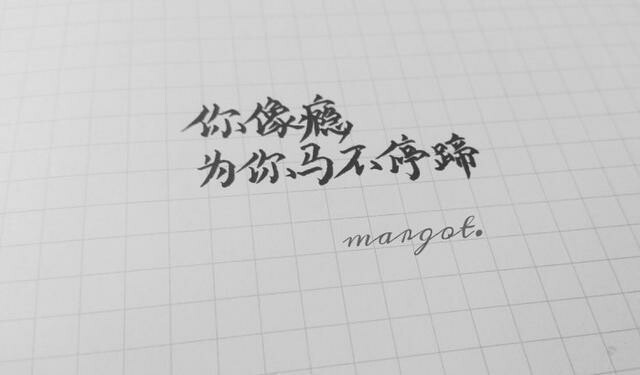 你像瘾
为你马不停蹄
margot.